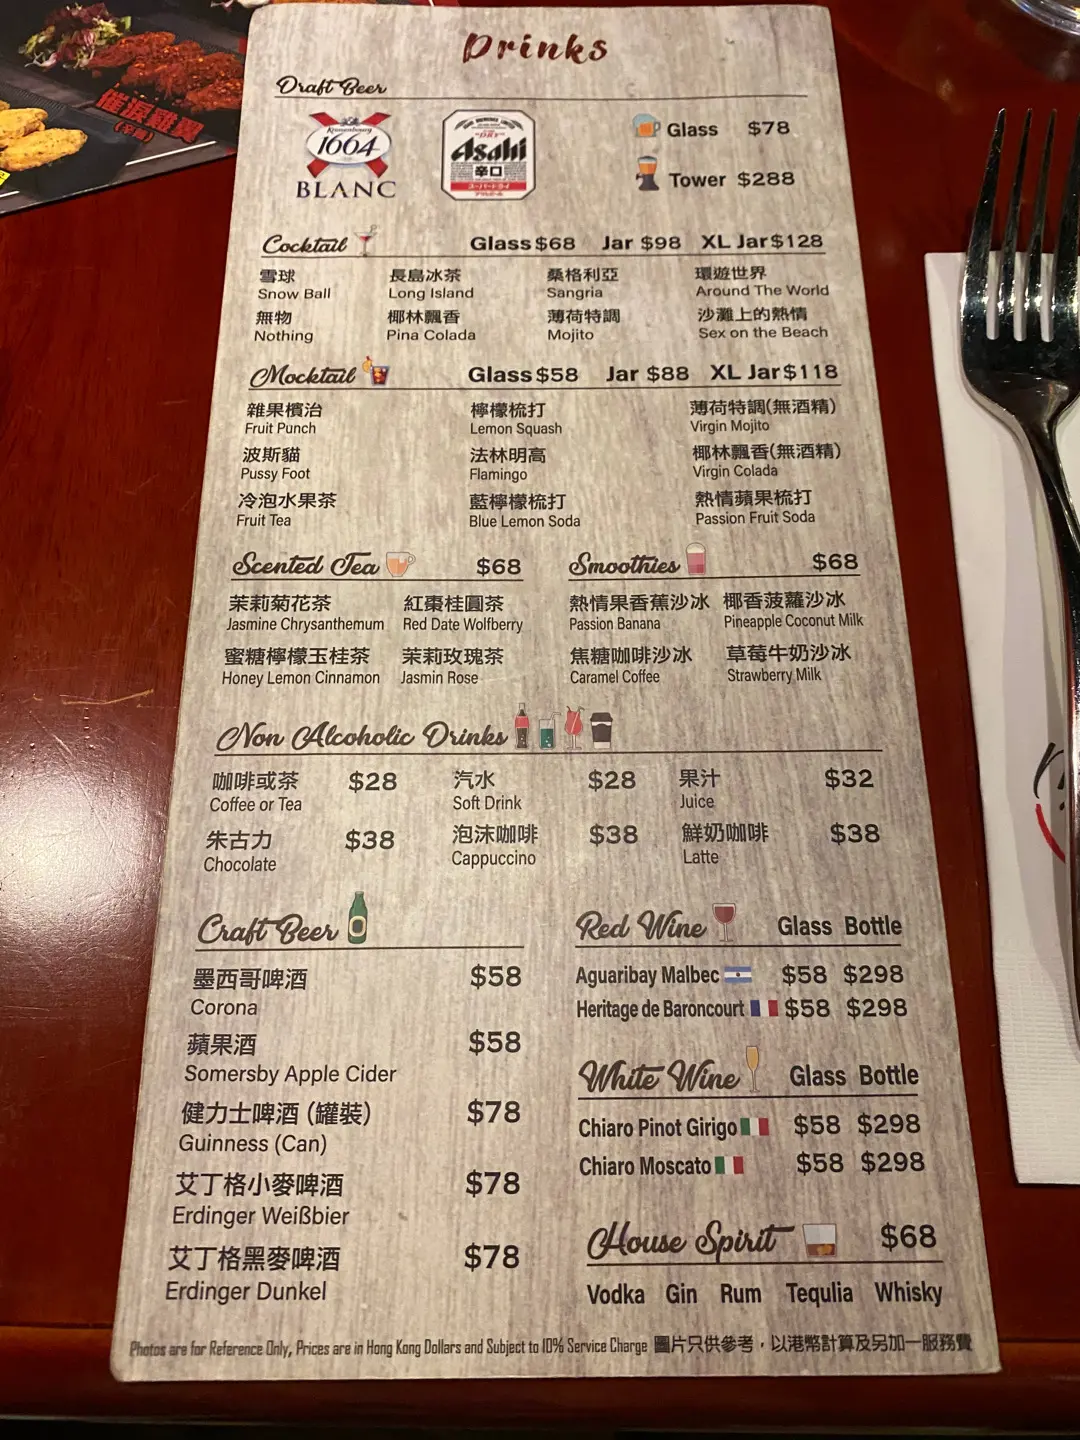 催淚雞翼
(辛辣)
Drinks
Draft Beer
Kronenbourg
1664
BLANC
"DRY"
Asahi
辛口
スーパードライ
Glass $78
Tower $288
Cocktail Glass $68 Jar $98 XL Jar $128
雪球 長島冰茶 桑格利亞 環遊世界
Snow Ball Long Island Sangria Around The World
無物 椰林飄香 薄荷特調 沙灘上的熱情
Nothing Pina Colada Mojito Sex on the Beach
Mocktail Glass $58 Jar $88 XL Jar $118
雜果檳治 檸檬梳打 薄荷特調(無酒精)
Fruit Punch Lemon Squash Virgin Mojito
波斯貓 法林明高 椰林飄香(無酒精)
Pussy Foot Flamingo Virgin Colada
冷泡水果茶 藍檸檬梳打 熱情蘋果梳打
Fruit Tea Blue Lemon Soda Passion Fruit Soda
Scented Tea $68
茉莉菊花茶 紅棗桂圓茶
Jasmine Chrysanthemum Red Date Wolfberry
蜜糖檸檬玉桂茶 茉莉玫瑰茶
Honey Lemon Cinnamon Jasmin Rose
Smoothies $68
熱情果香蕉沙冰 椰香菠蘿沙冰
Passion Banana Pineapple Coconut Milk
焦糖咖啡沙冰 草莓牛奶沙冰
Caramel Coffee Strawberry Milk
Non Alcoholic Drinks
咖啡或茶 $28 汽水 $28 果汁 $32
Coffee or Tea Soft Drink Juice
朱古力 $38 泡沫咖啡 $38 鮮奶咖啡 $38
Chocolate Cappuccino Latte
Craft Beer
墨西哥啤酒 $58
Corona
蘋果酒 $58
Somersby Apple Cider
健力士啤酒 (罐裝) $78
Guinness (Can)
艾丁格小麥啤酒 $78
Erdinger Weißbier
艾丁格黑麥啤酒 $78
Erdinger Dunkel
Red Wine Glass Bottle
Aguaribay Malbec $58 $298
Heritage de Baroncourt $58 $298
White Wine Glass Bottle
Chiaro Pinot Girigo $58 $298
Chiaro Moscato $58 $298
House Spirit $68
Vodka Gin Rum Tequlia Whisky
Photos are for Reference Only, Prices are in Hong Kong Dollars and Subject to 10% Service Charge 圖片只供參考，以港幣計算及另加一服務費